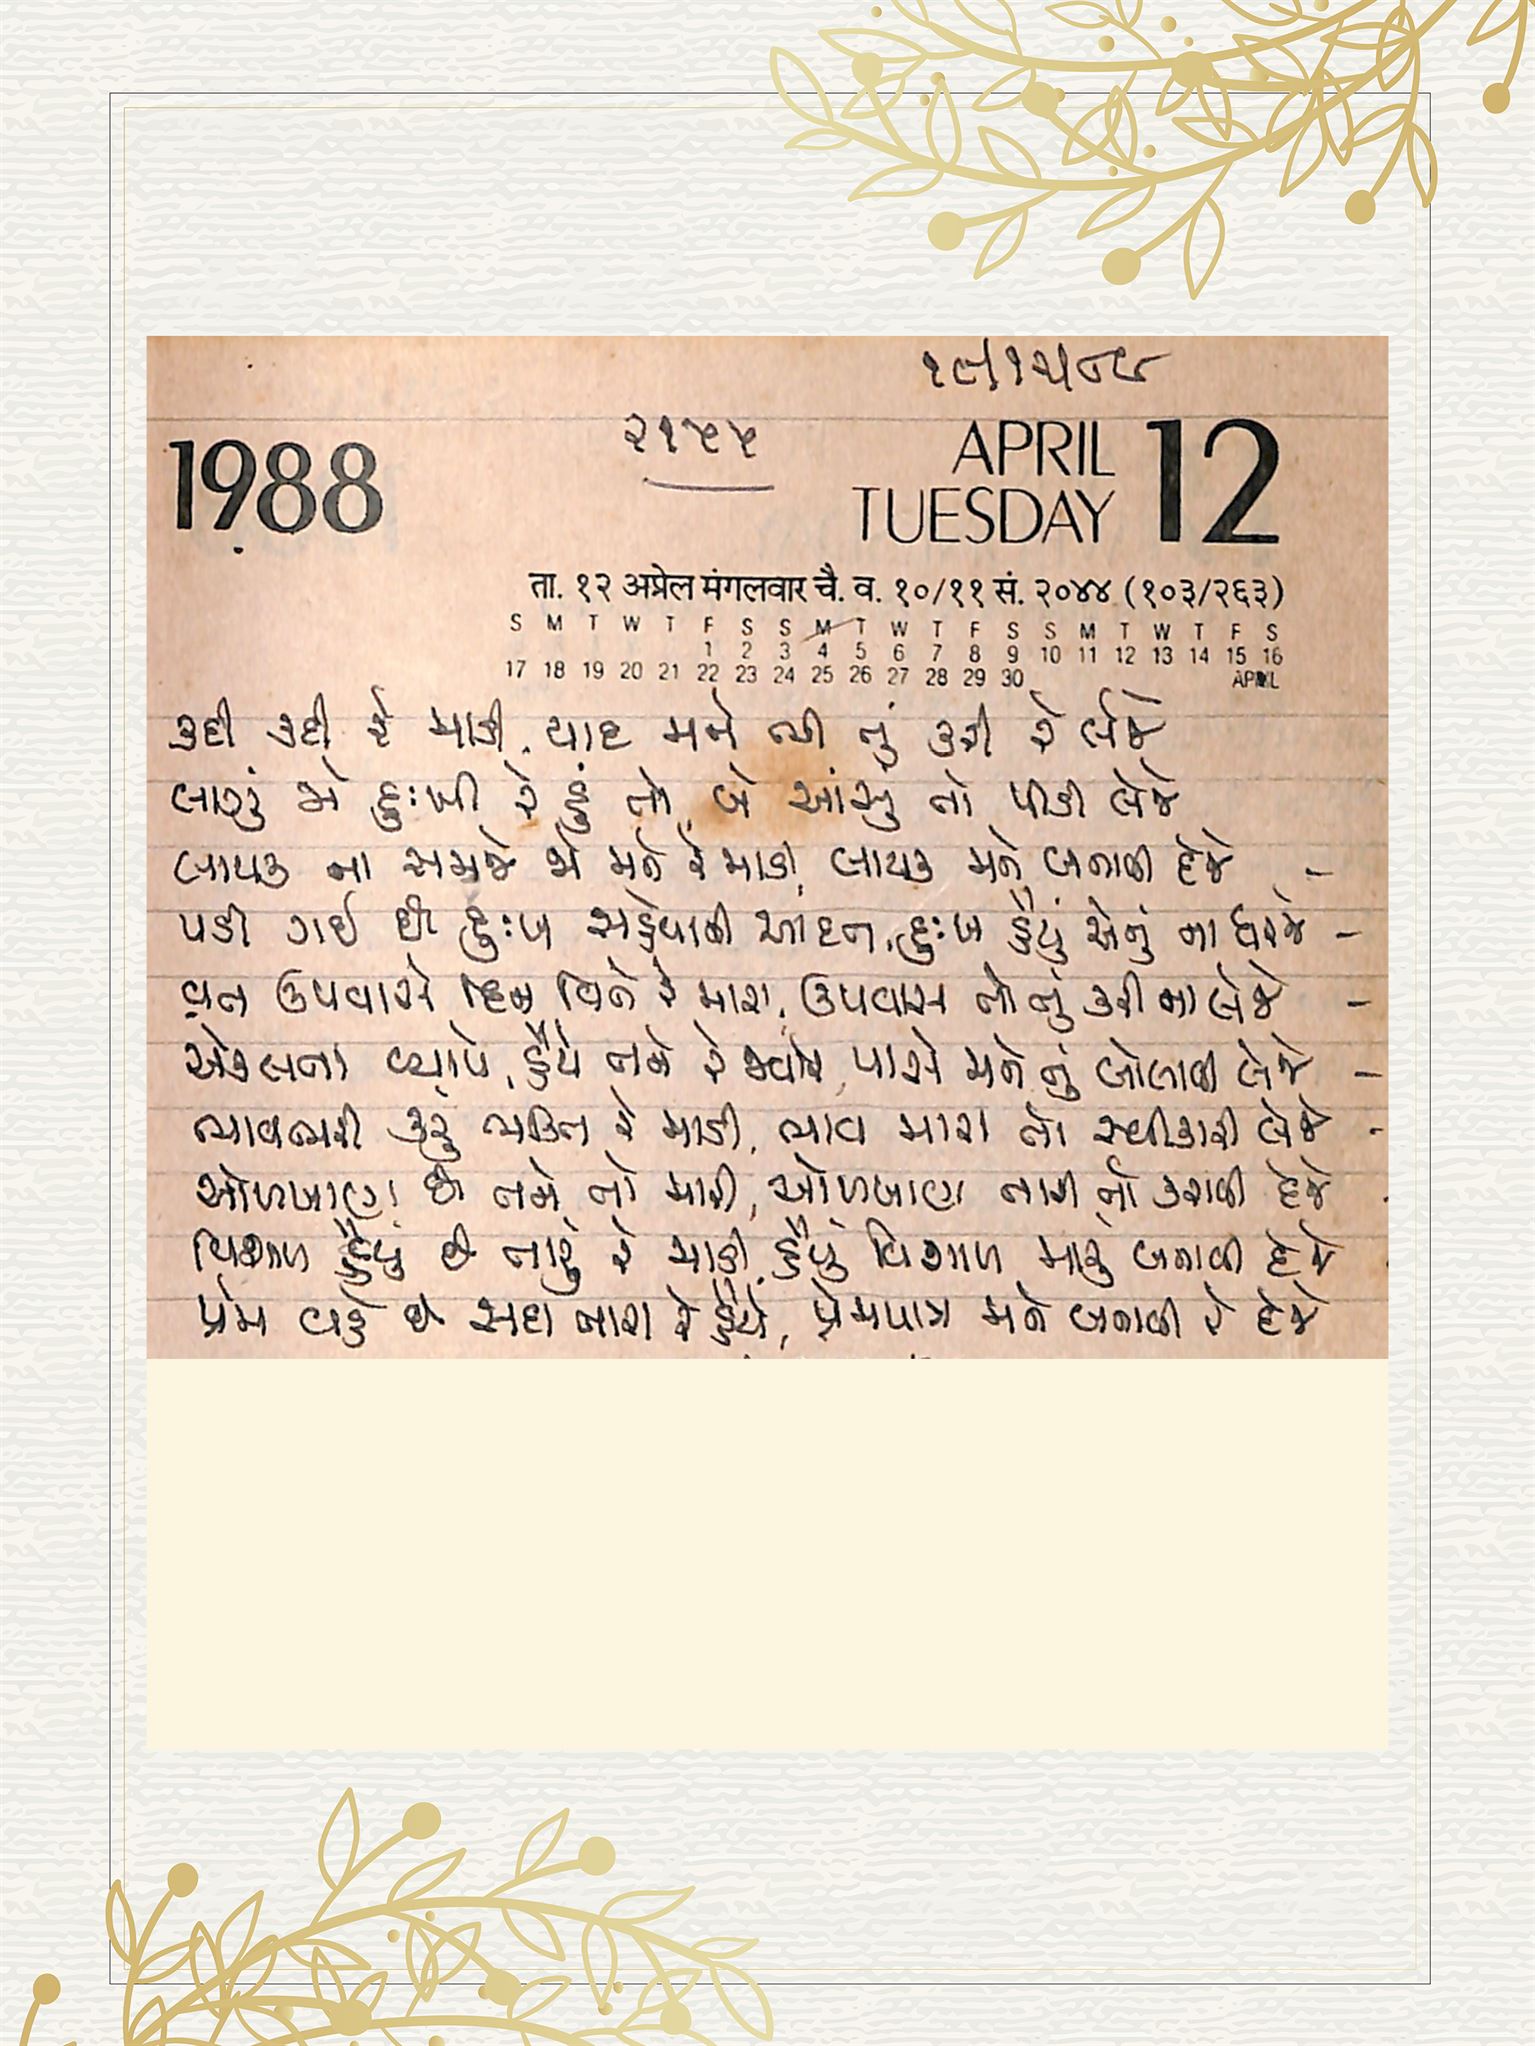 ૧૯૧૨૫૮૯
1988
૨૧૪૪
APRIL 12
TUESDAY
ता. १२ अप्रेल मंगलवार चै. व. १०/११ सं. २०४४ (१०३/२६३)
S M T W T F S S M T W T F S S M T W T F S
1 2 3 4 5 6 7 8 9 10 11 12 13 14 15 16
17 18 19 20 21 22 23 24 25 26 27 28 29 30 APRIL
કદી કદી રે માડી, યાદ મને ભી તું કરી રે લેજે
લાગું જો દુઃખી રે હું તો, બે આંસું તો પીડી લેજે
લાયક ના સમજે જો મને રે માડી, લાયક મને બનાવી દેજે -
પડી ગઈ છે દુઃખ સહેવાની આદત, દુઃખ હૈયું એનું ના ધરજે -
વ્રત ઉપવાસે હિત ચિત્તે રે મારા, ઉપવાસ તો તું કરી ના લેજે -
એકલતા વ્યાપે, હૈયે તને રે જ્યારે, પાસે મને તું બોલાવી લેજે -
ભાવભરી કરું ભક્તિ રે માડી, ભાવ મારા તો સ્વીકારી લેજે -
ઓળખાણ છે તને તો મારી, ઓળખાણ તારી તો કરાવી દેજે
વિશાળ હૈયું છે તારું રે માડી, હૈયું વિશાળ મારું બનાવી દેજે
પ્રેમ વહે છે સદા તારા રે હૈયે, પ્રેમપાત્ર મને બનાવી રે દેજે